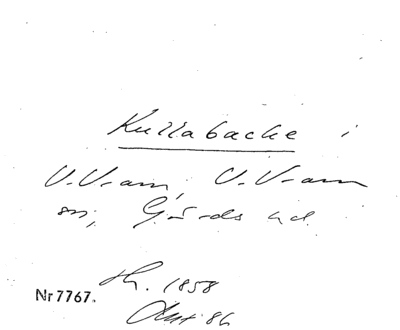 Kullabacke i
V. Vram, V. Vram
sn, Gärds hd
Nr 7767. 1858
86